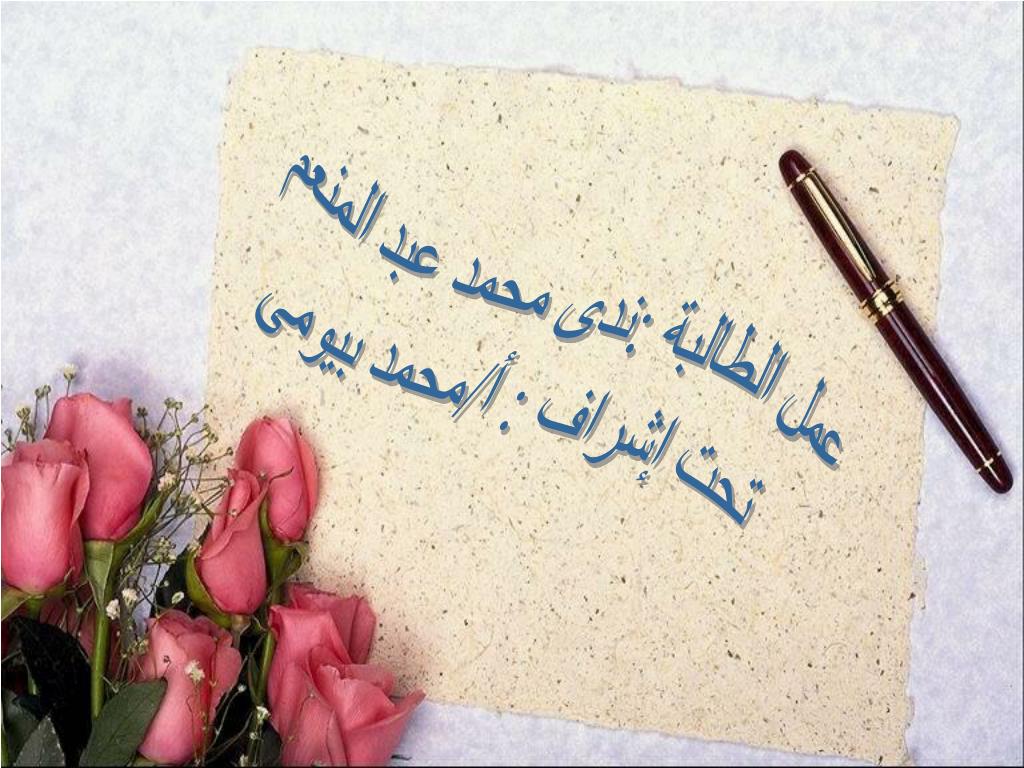 عمل الطالبة :ندى محمد عبد المنعم
تحت إشراف : أ/محمد بيومى